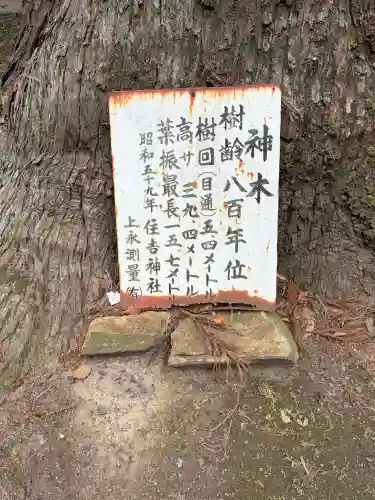 神木
樹齢八百年位
樹回(目通)五.四メートル
高サ三九.四メートル
葉振最長一五.七メートル
昭和五十九年住吉神社
上永測量(有)